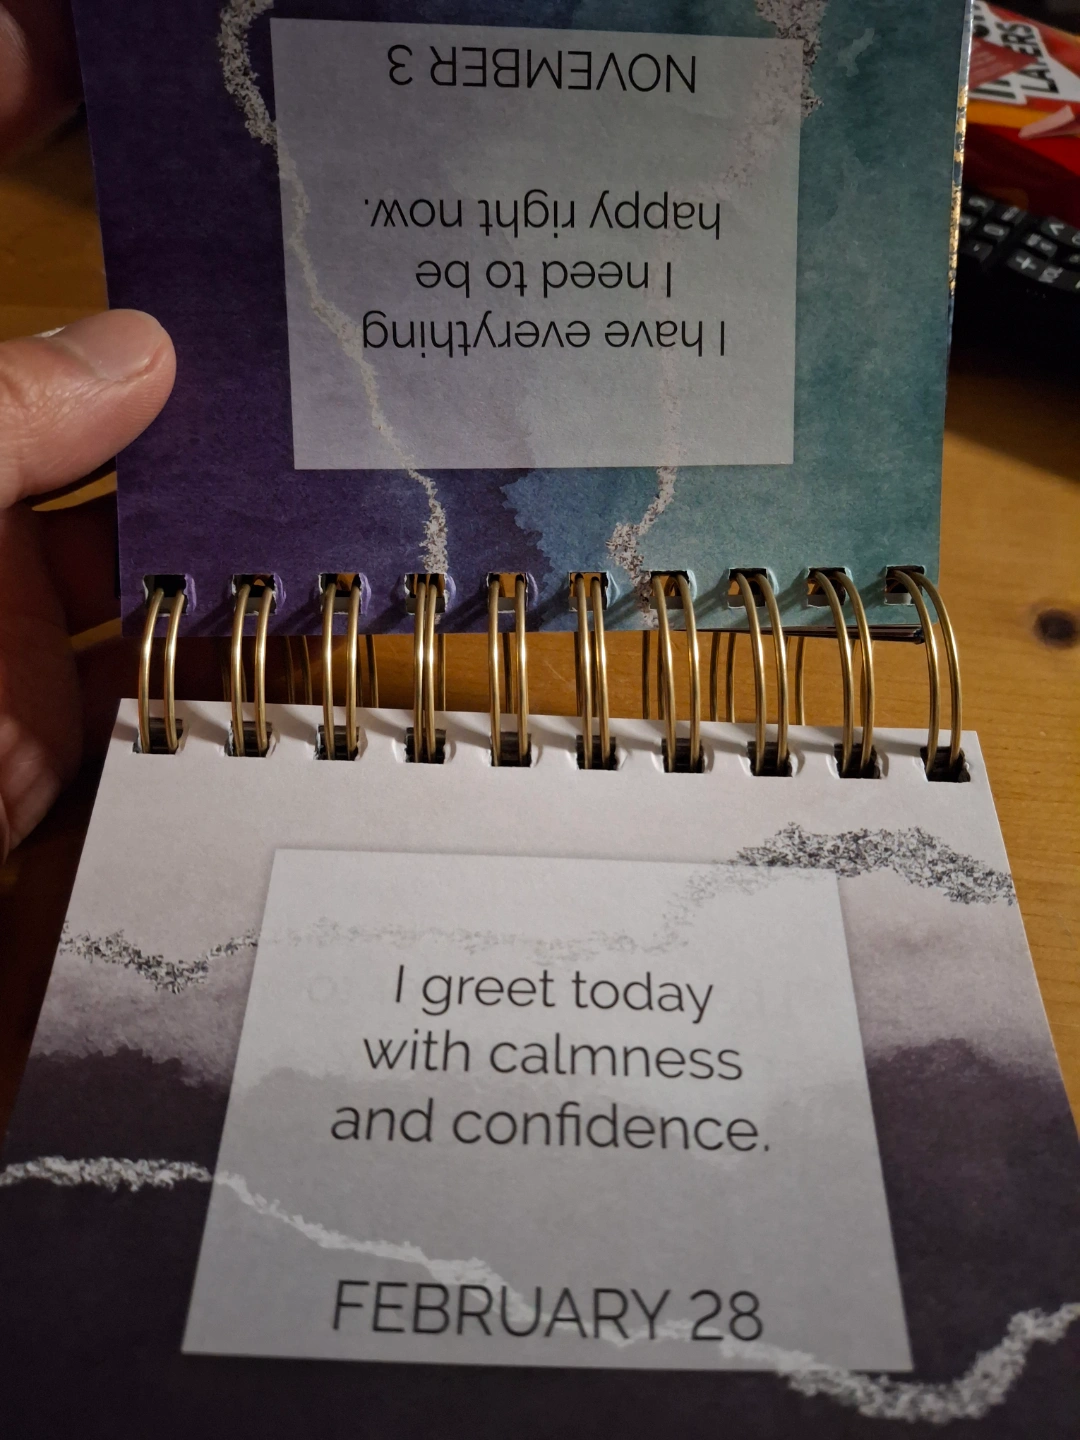 NOVEMBER 3
I have everything
I need to be
happy right now.
I greet today
with calmness
and confidence.
FEBRUARY 28